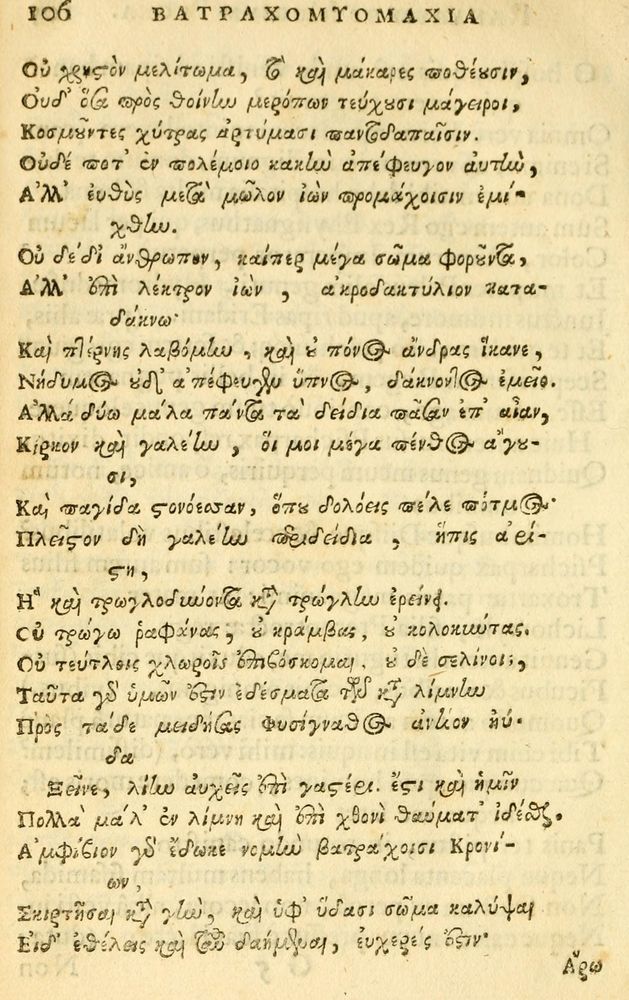 106 ΒΑΤΡΑΧΟΜΥΟΜΑΧΙΑ
Οὐ χρηστὸν μελίτωμα, τὸ καὶ μάκαρες ποθέουσιν,
Οὐδ' ὅσα πρὸς θοίνην μερόπων τεύχουσι μάγειροι,
Κοσμοῦντες χύτρας ἀρτύμασι παντοδαπαῖσιν.
Οὐδέ ποτ' ἐν πολέμοιο κακὴν ἀπέφευγον ἀυτὴν,
Ἀλλ' ἐυθὺς μετὰ μῶλον ἰὼν προμάχοισιν ἐμί-
χθην.
Οὐ δέδι' ἄνθρωπον, καίπερ μέγα σῶμα φοροῦντα,
Ἀλλ' ἐπὶ λέκτρον ἰὼν, ἀκροδακτύλιον κατα-
δάκνω·
Καὶ πτέρνης λαβόμην, καὶ οὐ πόνος ἄνδρας ἵκανε,
Νήδυμος οὐκ ἀπέφευγεν ὕπνος, δάκνοντος ἐμεῖο.
Ἀλλὰ δύω μάλα πάντα τὰ δείδια πᾶσαν ἐπ' αἶαν,
Κίρκον καὶ γαλέην, ὅι μοι μέγα πένθος ἄγου-
σι,
Καὶ παγίδα στονόεσσαν, ὅπου δολόεις πέλε πότμος·
Πλεῖστον δὴ γαλέην περιδείδια, ἥτις ἀρί-
στη,
Ἣ καὶ τρωγλοδύνοντα κατὰ τρώγλην ἐρεείνει.
Οὐ τρώγω ῥαφάνας, οὐ κράμβας, οὐ κολοκύντας.
Οὐ τεύτλοις χλωροῖς ἐπιβόσκομαι, οὐ δὲ σελίνοις,
Ταῦτα γὰρ ὑμῶν ἐστιν ἐδέσματα τῶν κατὰ λίμνην
Πρὸς τάδε μειδήσας Φυσίγναθος ἀντίον ηὔ-
δα
Ξεῖνε, λίην ἀυχεῖς ἐπὶ γαστέρι. ἔστι καὶ ἡμῖν
Πολλὰ μάλ' ἐν λίμνῃ καὶ ἐπὶ χθονὶ θαύματ' ἰδέσθαι.
Ἀμφίβιον γὰρ ἔδωκε νομὴν βατράχοισι Κρονί-
ων,
Σκιρτῆσαι κατὰ γῆν, καὶ ὑφ' ὕδασι σῶμα καλύψαι
Εἰ δ' ἐθέλεις καὶ ταῦτα δαήμεναι, ἐυχερές ἐστιν·
Ἄρω